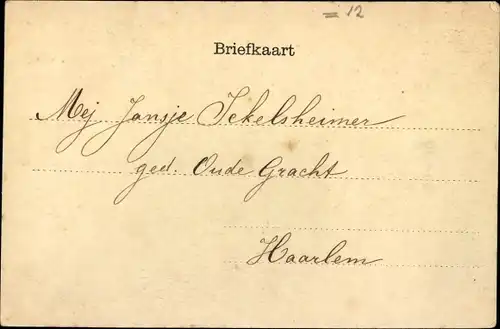 = 12
Briefkaart
Mej Jansje Ickelsheimer
ged. Oude Gracht
Haarlem